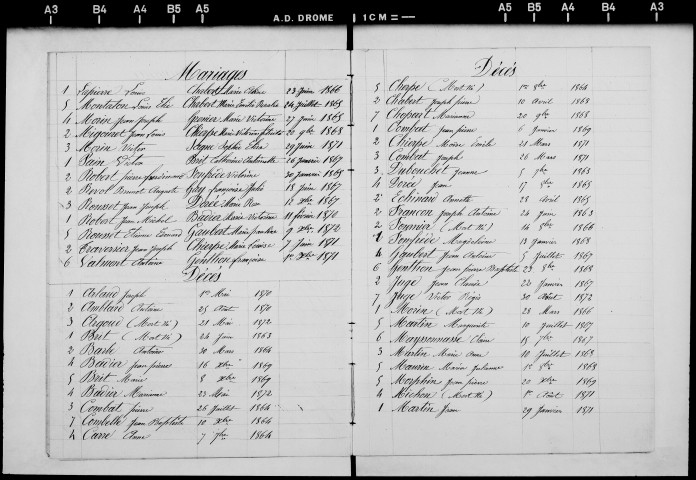 A3 B4 A4 B5 A5 A.D. DROME 1 CM = A5 B5 A4 B4 A3
Mariages
1 Lapierre Louis Chabert Marie Claire 23 Juin 1866
5 Montélon Louis Elie Chabert Marie Emilie Rosalie 24 Juillet 1865
4 Morin Jean Joseph Garnier Marie Victorine 27 Juin 1865
2 Jean Louis Chierpe Marie 20 9bre 1868
3 Morin Victor Sophie Elisa 29 Juin 1871
1 Pain Victor Brit Catherine Antoinette 16 Janvier 1867
2 Robert Pierre Ferdinand Victorine 30 Janvier 1865
2 Revol Auguste Gay Françoise Julie 18 Juin 1867
3 Rousset Jean Joseph Dorée Marie Rose 12 Xbre 1867
1 Robert Jean Michel Badier Marie Victorine 11 février 1870
5 Rousset Etienne Edouard Gaubert Marie 9 Xbre 1872
2 Traversier Jean Joseph Chierpe Marie Louise 7 Juin 1871
6 Valmont Antoine Genthon françoise 1er Xbre 1871
Décès
1 Arlaud Joseph 1er Mai 1870
2 Amblard Antoine 25 Août 1870
3 Argoud (Mort Né) 21 Mai 1872
1 Brit (Mort Né) 24 Juin 1863
2 Barle Antoine 30 Mars 1864
4 Badier Jean pierre 16 Xbre 1869
5 Brit Marie 8 Xbre 1869
4 Badier Marianne 23 Mai 1872
3 Combat pierre 26 Juillet 1864
7 Combelle Jean Baptiste 10 Xbre 1864
4 Carre Anne 7 7bre 1864
Décès
5 Cherpe (Mort Né) 1er 8bre 1864
2 Chabert Joseph pierre 10 Avril 1868
7 Chopart Marianne 20 9bre 1868
1 Combat Jean pierre 6 Janvier 1869
2 Chierpe Moïse Emile 21 Mars 1871
3 Combat Joseph 26 Mars 1871
3 Dubouchet Jeanne 5 7bre 1863
4 Dorée Jean 17 8bre 1865
2 Echinard Annette 28 Avril 1865
2 Francon Joseph Antoine 24 Juin 1863
2 (Mort Né) 14 8bre 1866
7 Magdeleine 13 Janvier 1868
4 Gaubert Jean Antoine 5 Juillet 1867
6 Genthon Jean pierre Baptiste 23 8bre 1868
2 Juge Jean 22 Janvier 1867
7 Juge Victor Régis 30 Août 1872
1 Morin (Mort Né) 28 Mars 1866
5 Martin Marguerite 10 Juillet 1867
6 Mayssonnasse Claire 18 7bre 1867
3 Martin Marie Anne 10 Juillet 1868
5 Maurin Marie Julienne 1er 8bre 1868
5 Morphin Jean pierre 20 Xbre 1869
4 Michon (Mort Né) 1er Août 1871
1 Martin Jean 29 Janvier 1871